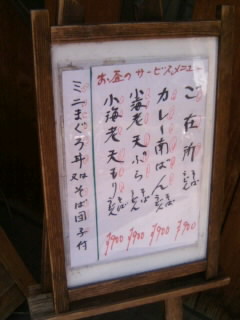 お昼のサービスメニュー
ご在所 うどん そば ¥900
カレー南ばん うどん そば ¥900
小海老天ぷら うどん そば ¥900
小海老天もり うどん そば ¥900
ミニまぐろ丼又はそば団子付